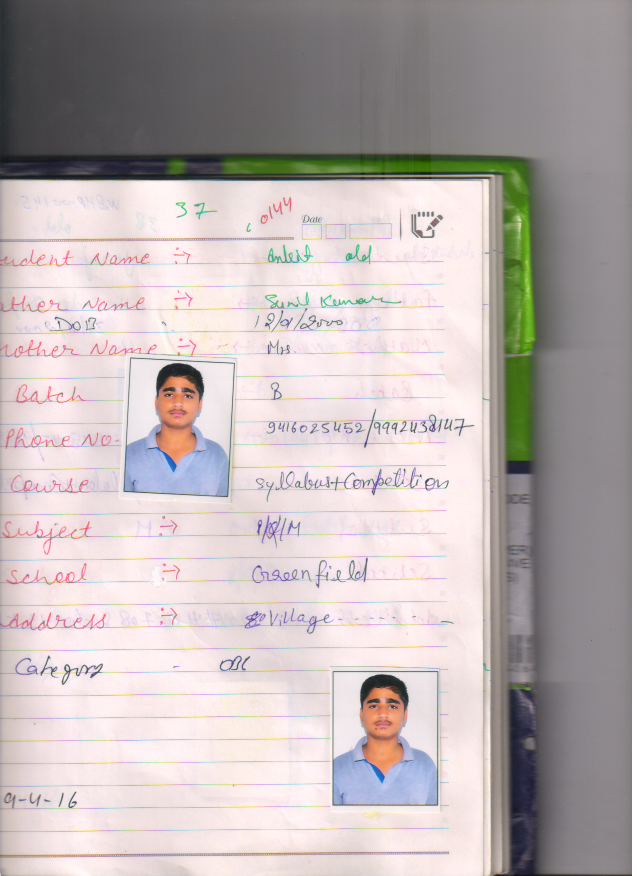 37 0144
Date
udent Name :- Ankit old
ather Name :- Sunil Kumar
DOB 12/9/2000
nother Name :- Mrs.
Batch B
Phone No- 9416025452/9992438147
Course Syllabus+Competition
Subject :- M
School :- Greenfield
Address :- Village - - - - - -
Category - OBC
9-4-16